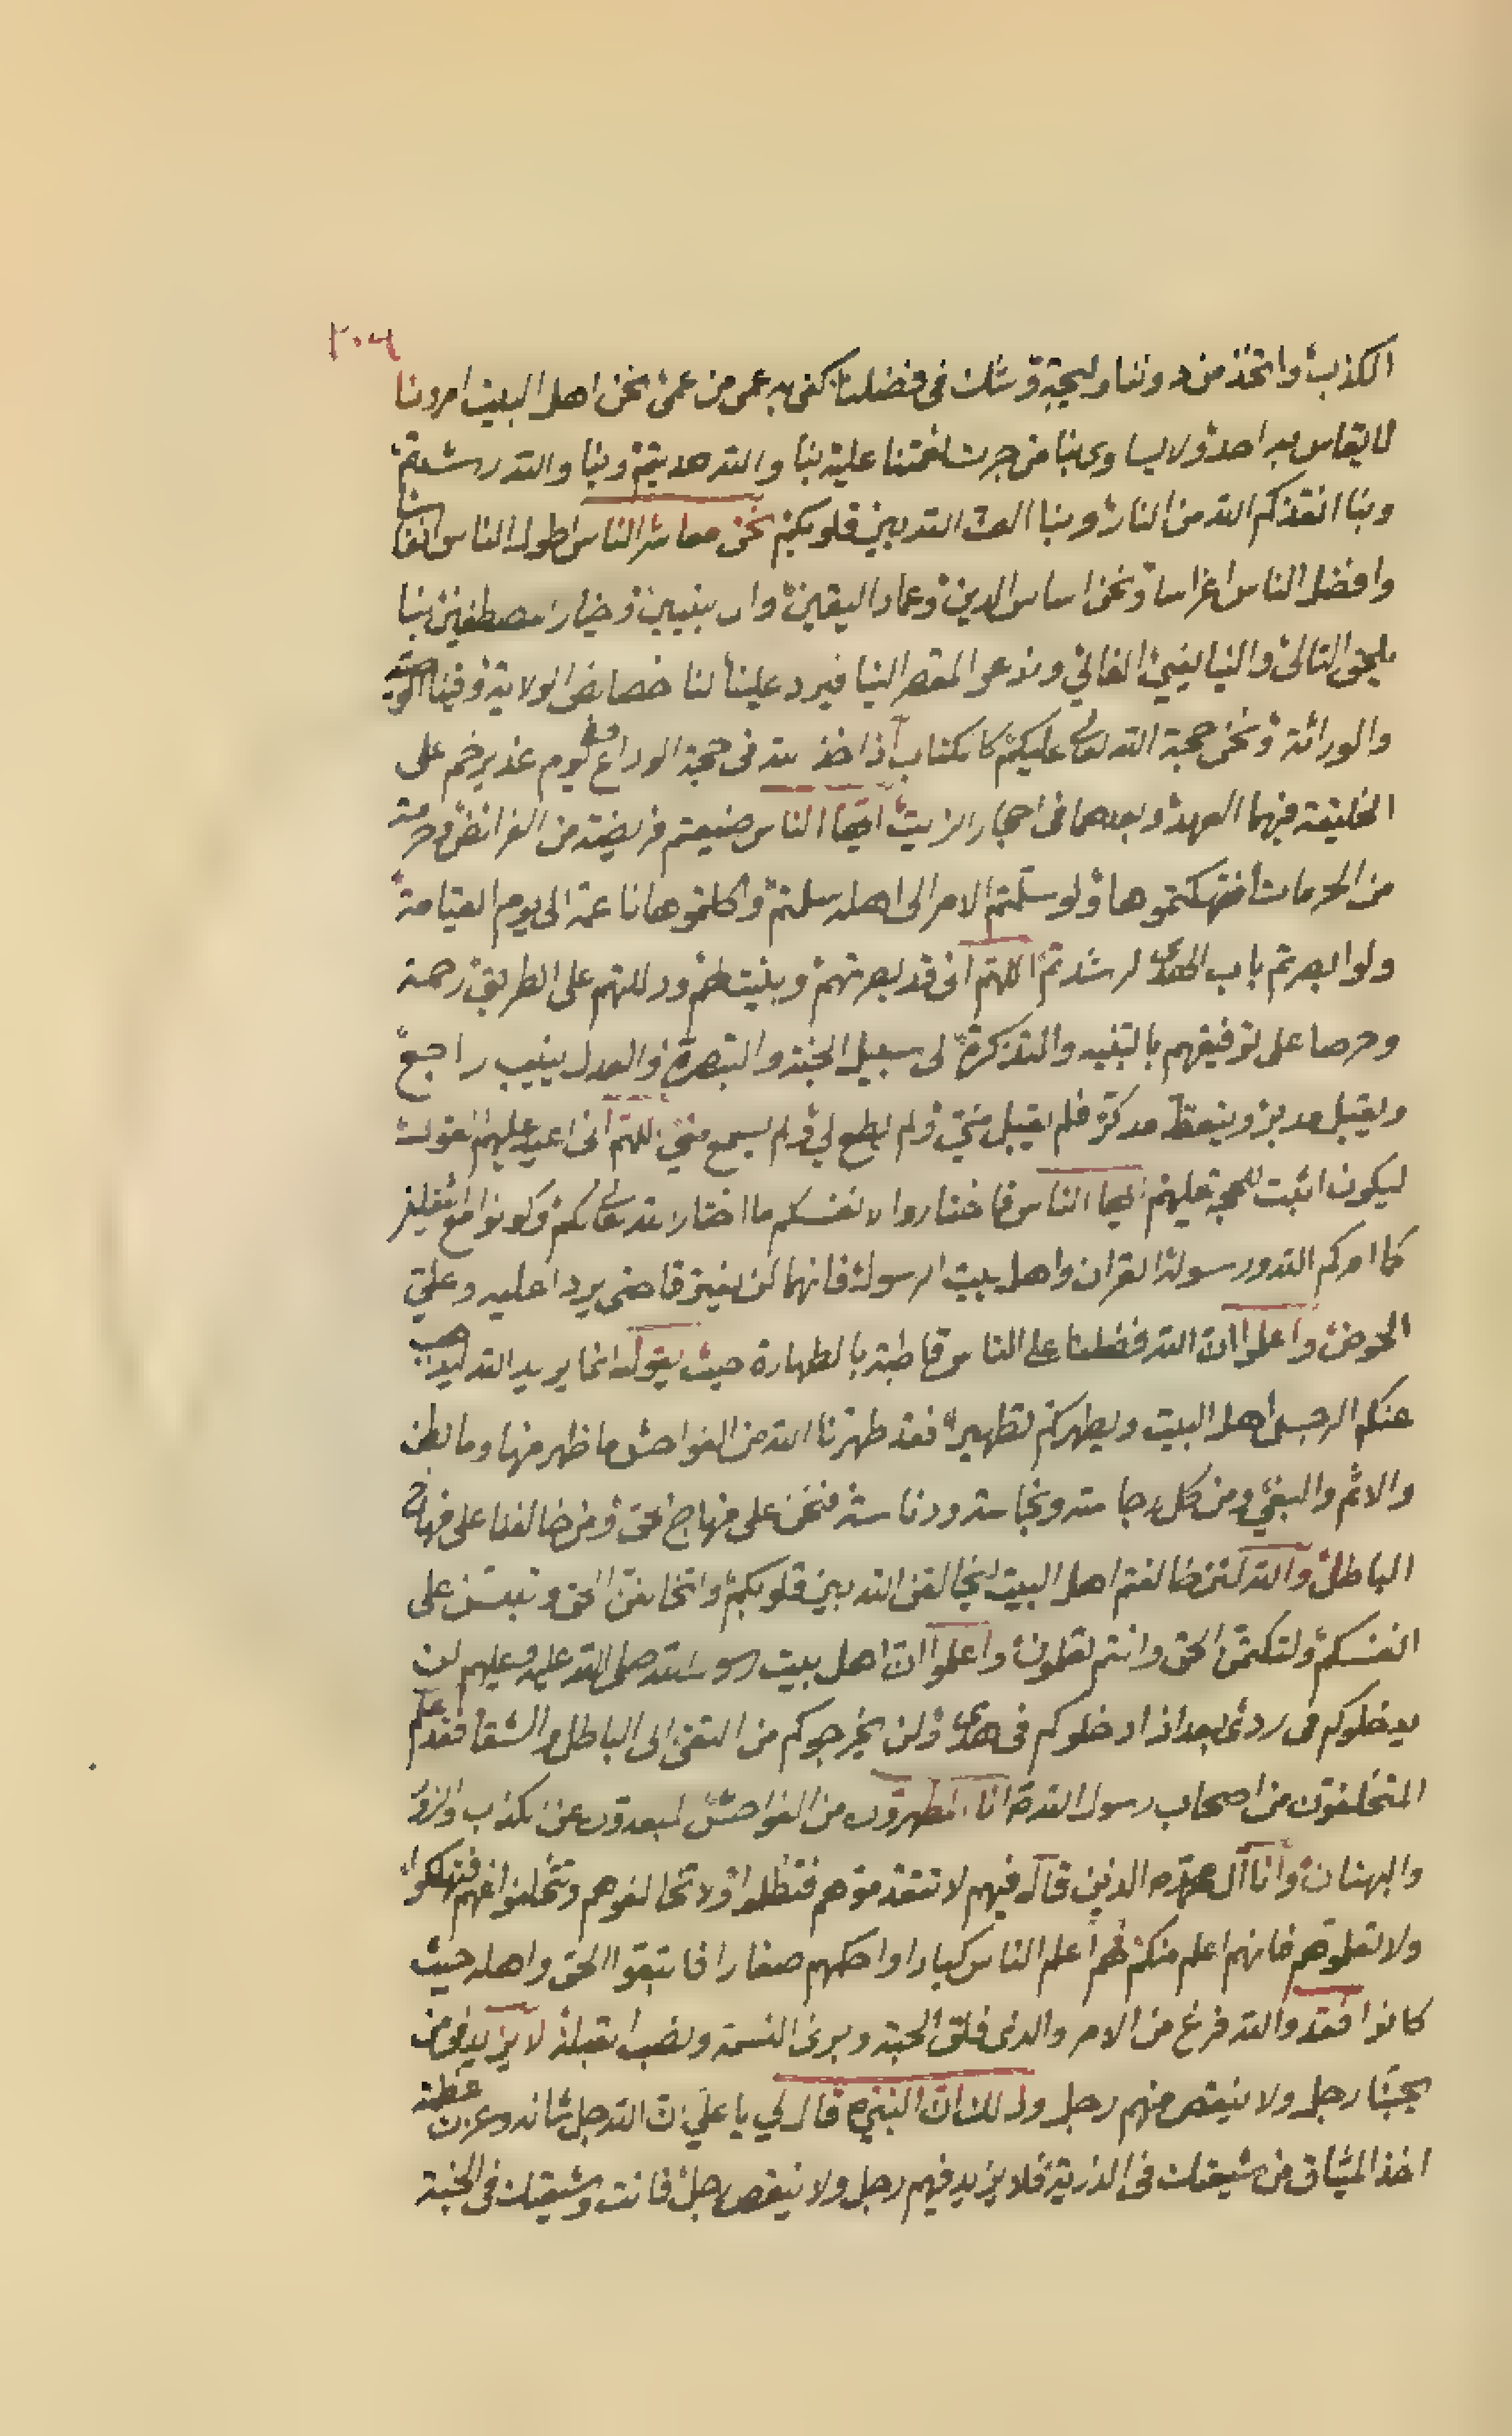 ٢٠٦
الكذب واتخذ من دوننا وليجة وشك في فضلنا كفى به عمى من عمى نحن اهل البيت امرونا
لا يقاس به احد ولا يساوى بنا من جرت نعمتنا عليه بنا والله هديتم وبنا والله رشدتم
وبنا انقذكم الله من النار وبنا الف الله بين قلوبكم نحن معاشر الناس اطول الناس
وافضل الناس اغراسا ونحن اساس الدين وعماد اليقين وخيار مصطفين بنا
يلحق التالي والينا يفيئ الغالي وندعو المقصر الينا فيرد علينا لنا خصايص الولاية وفينا الوصية
والوراثة ونحن حجة الله تعالى عليكم كالكتاب اذ اخذ الله في حجة الوداع يوم غدير خم على
الخليفة فيهما العهد وبعدهما في احجار الزيت ايها الناس ضيعتم فريضة من الفرائض وحرمة
من الحرمات انتهكتموها ولو سلمتم الامر الى اهله سلمتم الى يوم القيامة
ولو ابصرتم باب الهدى لرشدتم اللهم اني قد بصرتهم وبينت لهم ودللتهم على الطريق رحمة
وحرصا على توفيقهم بالتنبيه والتذكرة الى سبيل الجنة والتبصرة والعدل ينيب راجع
ويقبل مدبر ويتعظ مدكر فلم يقبل مني ولم يطع لي ولم يسمع مني اللهم اني اعيد عليهم القول
ليكون اثبت للحجة عليهم ايها الناس فاختاروا لانفسكم ما اختار الله تعالى لكم وكونوا مع الثقلين
كما امركم الله ورسوله القرآن واهل بيت الرسول فانهما لن يفترقا حتى يردا عليه وعلي
الحوض واعلموا ان الله فضلنا على الناس قاطبة بالطهارة حيث يقول انما يريد الله ليذهب
عنكم الرجس اهل البيت ويطهركم تطهيرا فقد طهرنا الله من الفواحش ما ظهر منها وما بطن
والاثم والبغي ومن كل رجاسة ونجاسة ودناسة فنحن على منهاج الحق ومن خالفنا على منهاج
الباطل والله لئن خالفتم اهل البيت ليخالفن الله بين قلوبكم ولتخالفن الحق على
انفسكم ولتكتمن الحق وانتم تعلمون واعلموا ان اهل بيت رسول الله صلى الله عليه وعليهم لن
يدخلوكم في ردى بعد اذ ادخلوكم في هدى ولن يخرجوكم من التقى الى الباطل والشقا فقد علم
المتخلفون من اصحاب رسول الله ص انا المطهرون من الفواحش لمبعدون عن الكذب والزور
والبهتان وانا آل محمد الذين قال فيهم لا تتقدموهم فتضلوا ولا تخالفوهم وتتخلفوا عنهم فتهلكوا
ولا تعلموهم فانهم اعلم منكم هم اعلم الناس كبارا واحكمهم صغارا فاتبعوا الحق واهله حيث
كانوا فقد والله فرغ من الامر والذي فلق الحبة وبرئ النسمة ونصب القبلة لا يزيد فيمن
يحبنا رجل ولا ينقص منهم رجل وذلك ان النبي ص قال لي يا علي ان الله جل شانه وعزت عظمته
اخذ الميثاق من شيعتك في الذرية فلا يزيد فيهم رجل ولا ينقص رجل فانت وشيعتك في الجنة